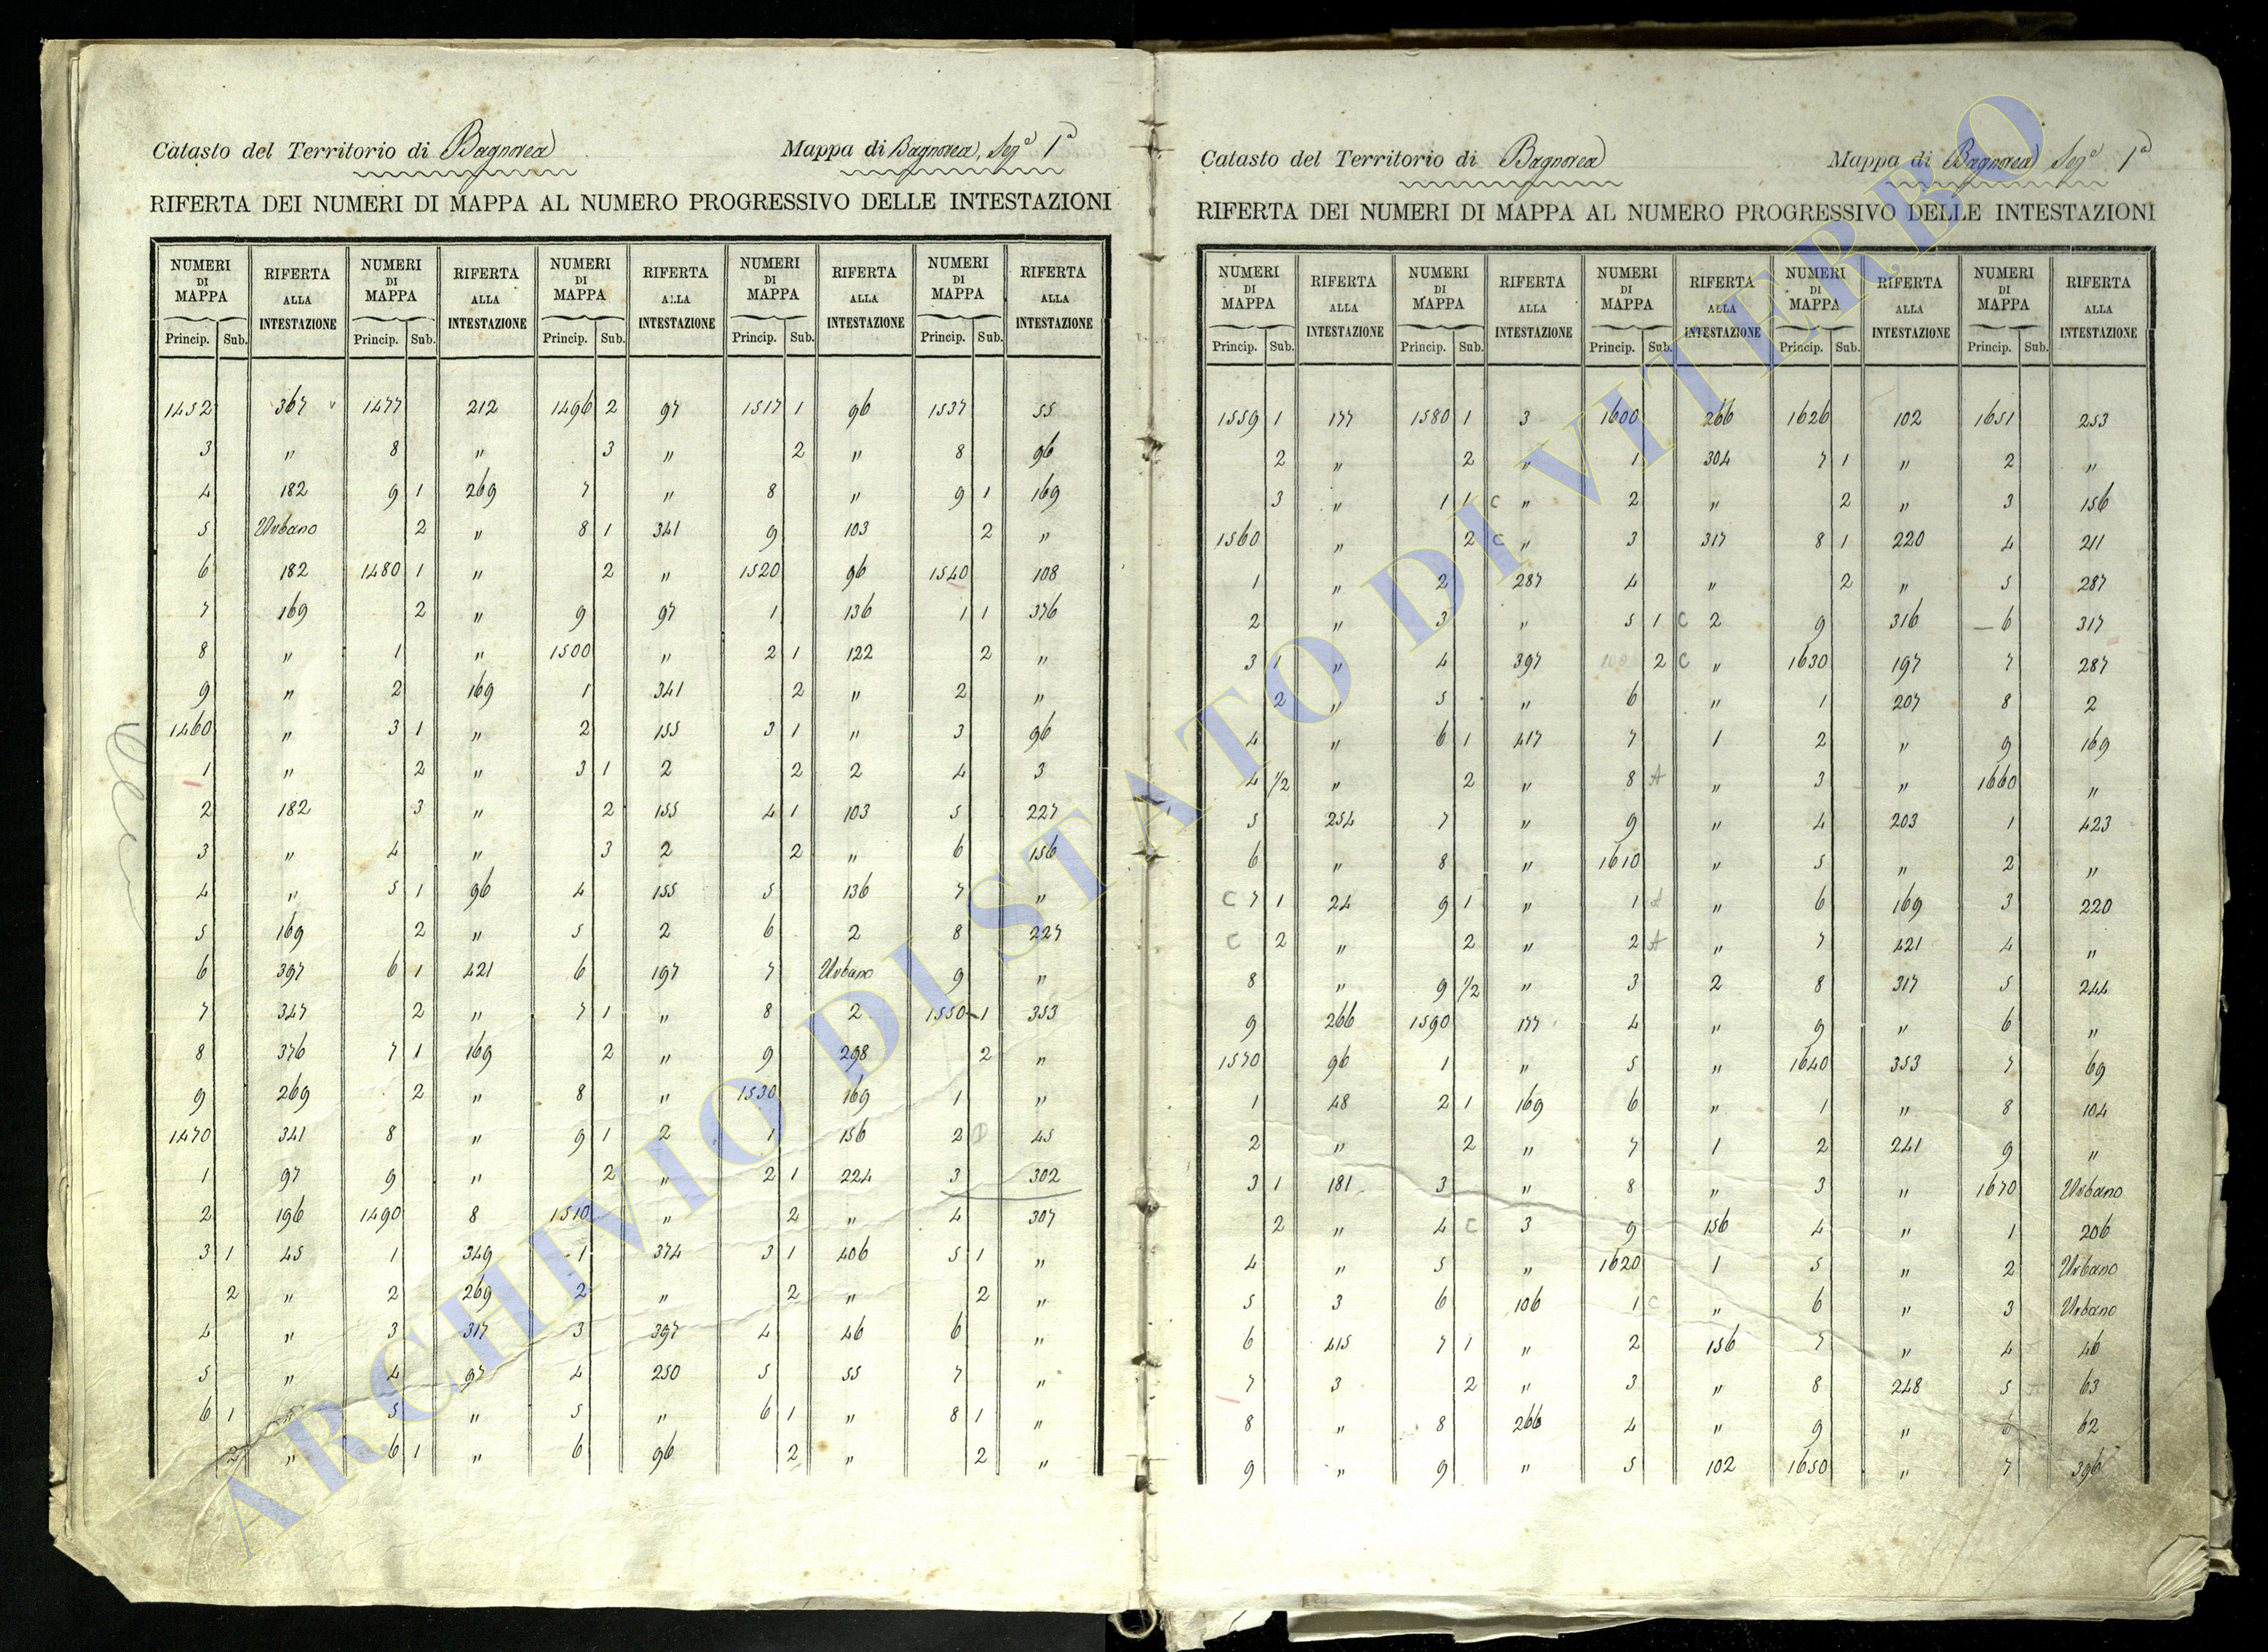 Catasto del Territorio di Bagnorea Mappa di Bagnorea, Sez.e 1a
RIFERTA DEI NUMERI DI MAPPA AL NUMERO PROGRESSIVO DELLE INTESTAZIONI
NUMERI DI MAPPA RIFERTA ALLA INTESTAZIONE NUMERI DI MAPPA RIFERTA ALLA INTESTAZIONE NUMERI DI MAPPA RIFERTA ALLA INTESTAZIONE NUMERI DI MAPPA RIFERTA ALLA INTESTAZIONE NUMERI DI MAPPA RIFERTA ALLA INTESTAZIONE
Princip. Sub. Princip. Sub. Princip. Sub. Princip. Sub. Princip. Sub.
1452 367 1477 212 1496 2 97 1517 1 96 1537 55
3 " 8 " 3 " 2 " 8 96
4 182 9 1 269 7 " 8 " 9 1 169
5 Urbano 2 " 8 1 341 9 103 2 "
6 182 1480 1 " 2 " 1520 96 1540 108
7 169 2 " 9 97 1 136 1 1 376
8 " 1 " 1500 " 2 1 122 2 "
9 " 2 169 1 341 2 " 2 "
1460 " 3 1 " 2 155 3 1 " 3 96
1 " 2 " 3 1 2 2 2 4 3
2 182 3 " 2 155 4 1 103 5 227
3 " 4 " 3 2 2 " 6 156
4 " 5 1 96 4 155 5 136 7 "
5 169 2 " 5 2 6 2 8 227
6 397 6 1 421 6 197 7 Urbano 9 "
7 347 2 " 7 1 " 8 2 1550 1 353
8 376 7 1 169 2 " 9 298 2 "
9 269 2 " 8 " 1530 169 1 "
1470 341 8 " 9 1 2 1 156 2 45
1 97 9 " 2 " 2 1 224 3 302
2 196 1490 8 1510 " 2 " 4 307
3 1 45 1 349 1 374 3 1 406 5 1 "
2 " 2 269 2 " 2 " 2 "
4 " 3 317 3 397 4 46 6 "
5 " 4 97 4 250 5 55 7 "
6 1 " 5 " 5 " 6 1 " 8 1 "
2 " 6 1 " 6 96 2 " 2 "
Catasto del Territorio di Bagnorea Mappa di Bagnorea Sez.e 1a
RIFERTA DEI NUMERI DI MAPPA AL NUMERO PROGRESSIVO DELLE INTESTAZIONI
NUMERI DI MAPPA RIFERTA ALLA INTESTAZIONE NUMERI DI MAPPA RIFERTA ALLA INTESTAZIONE NUMERI DI MAPPA RIFERTA ALLA INTESTAZIONE NUMERI DI MAPPA RIFERTA ALLA INTESTAZIONE NUMERI DI MAPPA RIFERTA ALLA INTESTAZIONE
Princip. Sub. Princip. Sub. Princip. Sub. Princip. Sub. Princip. Sub.
1559 1 177 1580 1 3 1600 266 1626 102 1651 253
2 " 2 " 1 304 7 1 " 2 "
3 " 1 1 C " 2 " 2 " 3 156
1560 " 2 C " 3 317 8 1 220 4 211
1 " 2 287 4 " 2 " 5 287
2 " 3 " 5 1 C 2 9 316 6 317
3 1 " 4 397 2 C " 1630 197 7 287
2 " 5 " 6 " 1 207 8 2
4 " 6 1 417 7 1 2 " 9 169
4 1/2 " 2 " 8 A " 3 " 1660 "
5 254 7 " 9 " 4 203 1 423
6 " 8 " 1610 " 5 " 2 "
C 7 1 24 9 1 " 1 A " 6 169 3 220
C 2 " 2 " 2 A " 7 421 4 "
8 " 9 1/2 " 3 2 8 317 5 244
9 266 1590 177 4 " 9 " 6 "
1570 96 1 " 5 " 1640 353 7 69
1 48 2 1 169 6 " 1 " 8 104
2 " 2 " 7 1 2 241 9 "
3 1 181 3 " 8 " 3 " 1670 Urbano
2 " 4 C 3 9 156 4 " 1 206
4 " 5 " 1620 1 5 " 2 Urbano
5 3 6 106 1 C " 6 " 3 Urbano
6 415 7 1 " 2 156 7 " 4 46
7 3 2 " 3 " 8 248 5 63
8 " 8 266 4 " 9 " 6 62
9 " 9 " 5 102 1650 " 7 396
ARCHIVIO DI STATO DI VITERBO